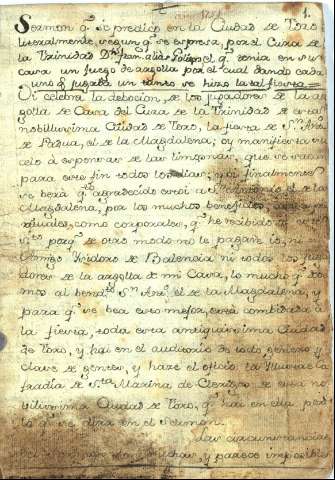 1.
Sermon q.e se predicó en la Ciudad de Toro
literalmente, segun q.e se expresa, por el Cura de
la Trinidad D.n Fran.co q.e tenia en su
casa un juego de argolla por el cual dando cada
uno q.e jugaba un tanto se hizo la tal fiesta =
Oi celebra la debocion, de los jugadores de la ar
golla de Casa del Cura de la Trinidad de esta
nobilissima Ciudad de Toro, la fiesta de S.n Ant.o
de Padua, el de la Magdalena; oy manifiesta su
celo á expensas de las limosnas, que se
para este fin todos los dias; y finalmente
se berá q.n agradecido estoi a S.n Antonio el de la
Magdalena, por los muchos beneficios, asi espi
rituales, como corporales, q.e he recibido de este
S.to porq.e de otro modo no le pagare io, ni
Domingo Isidoro de Palencia ni todos los juga
dores de la argolla de mi Casa, lo mucho q.e debe
mos al bend.to S.n Ant.o el de la Magdalena, y
para q.e se bea esto mejor, está combidada á
la fiesta, toda esta antiquissima Ciudad
de Toro, y hai en el auditorio de todo genero, y
clase de gentes, y haze el oficio la Illustre Co
fradia de S.ta Maria de Clerigos de esta no
vilissima Ciudad de Toro, q.e hai en ella
lo q.e se dira en el Sermon.
Las circunstancias
del Sermon son muchas, y parece imposible